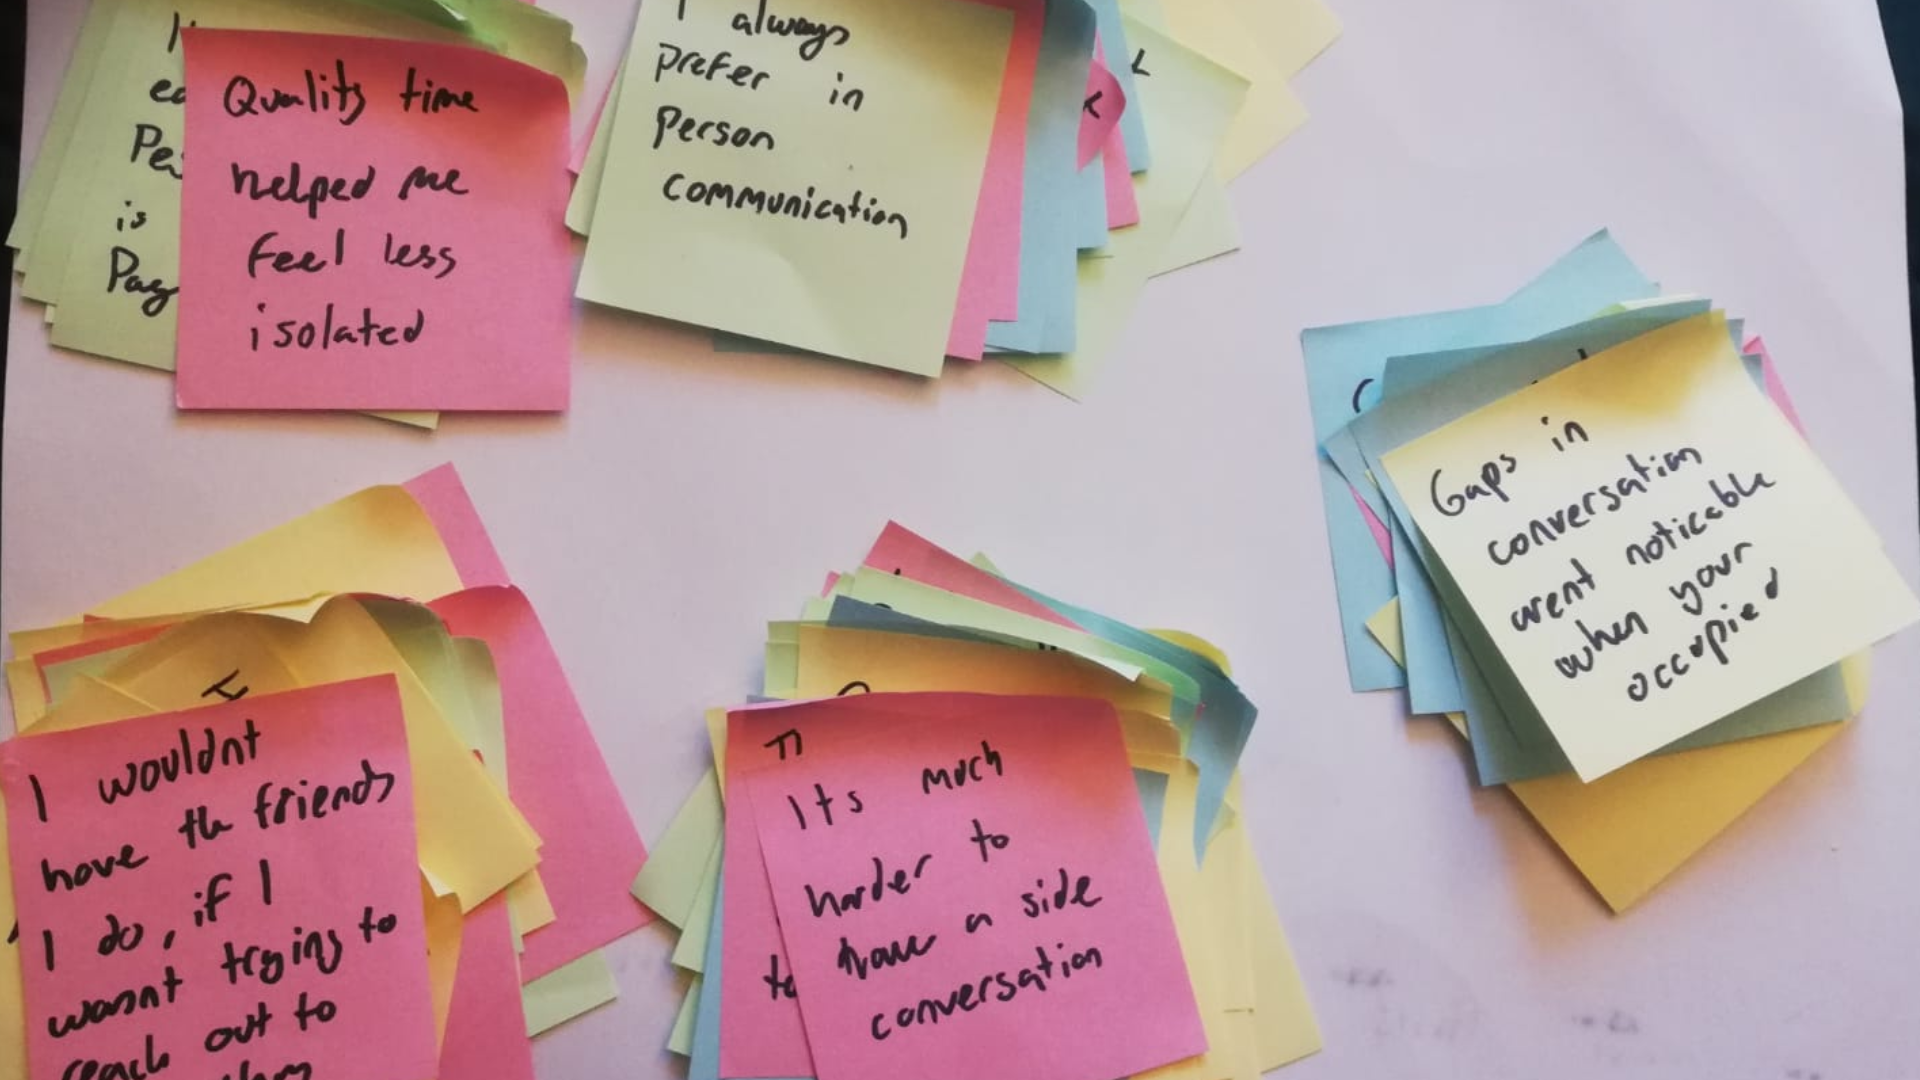 Quality time
helped me
feel less
isolated
I always
prefer in
person
communication
Gaps in
conversation
arent noticable
when your
occupied
I wouldnt
have the friends
I do, if I
wasnt trying to
reach out to
Its much
harder to
have a side
conversation
is
to